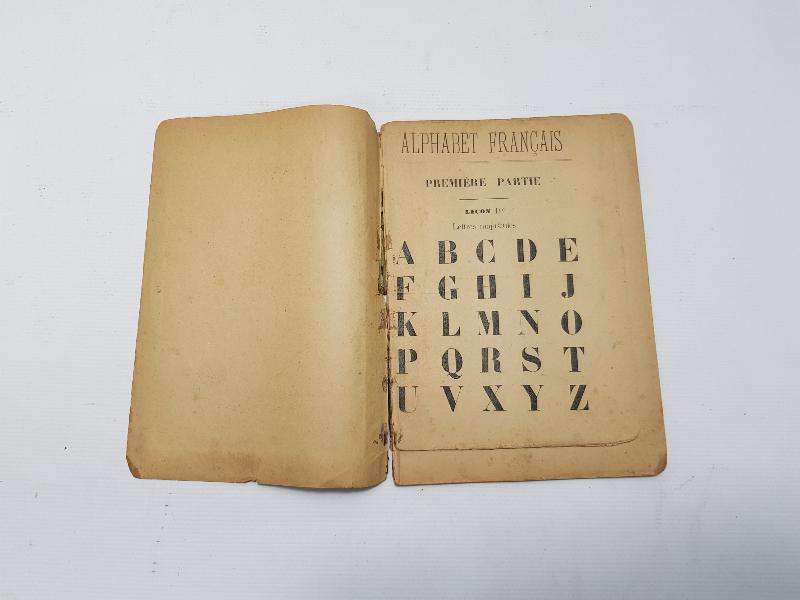 ALPHABET FRANÇAIS
PREMIÈRE PARTIE
LEÇON 1re
Lettres majuscules
A B C D E
F G H I J
K L M N O
P Q R S T
U V X Y Z